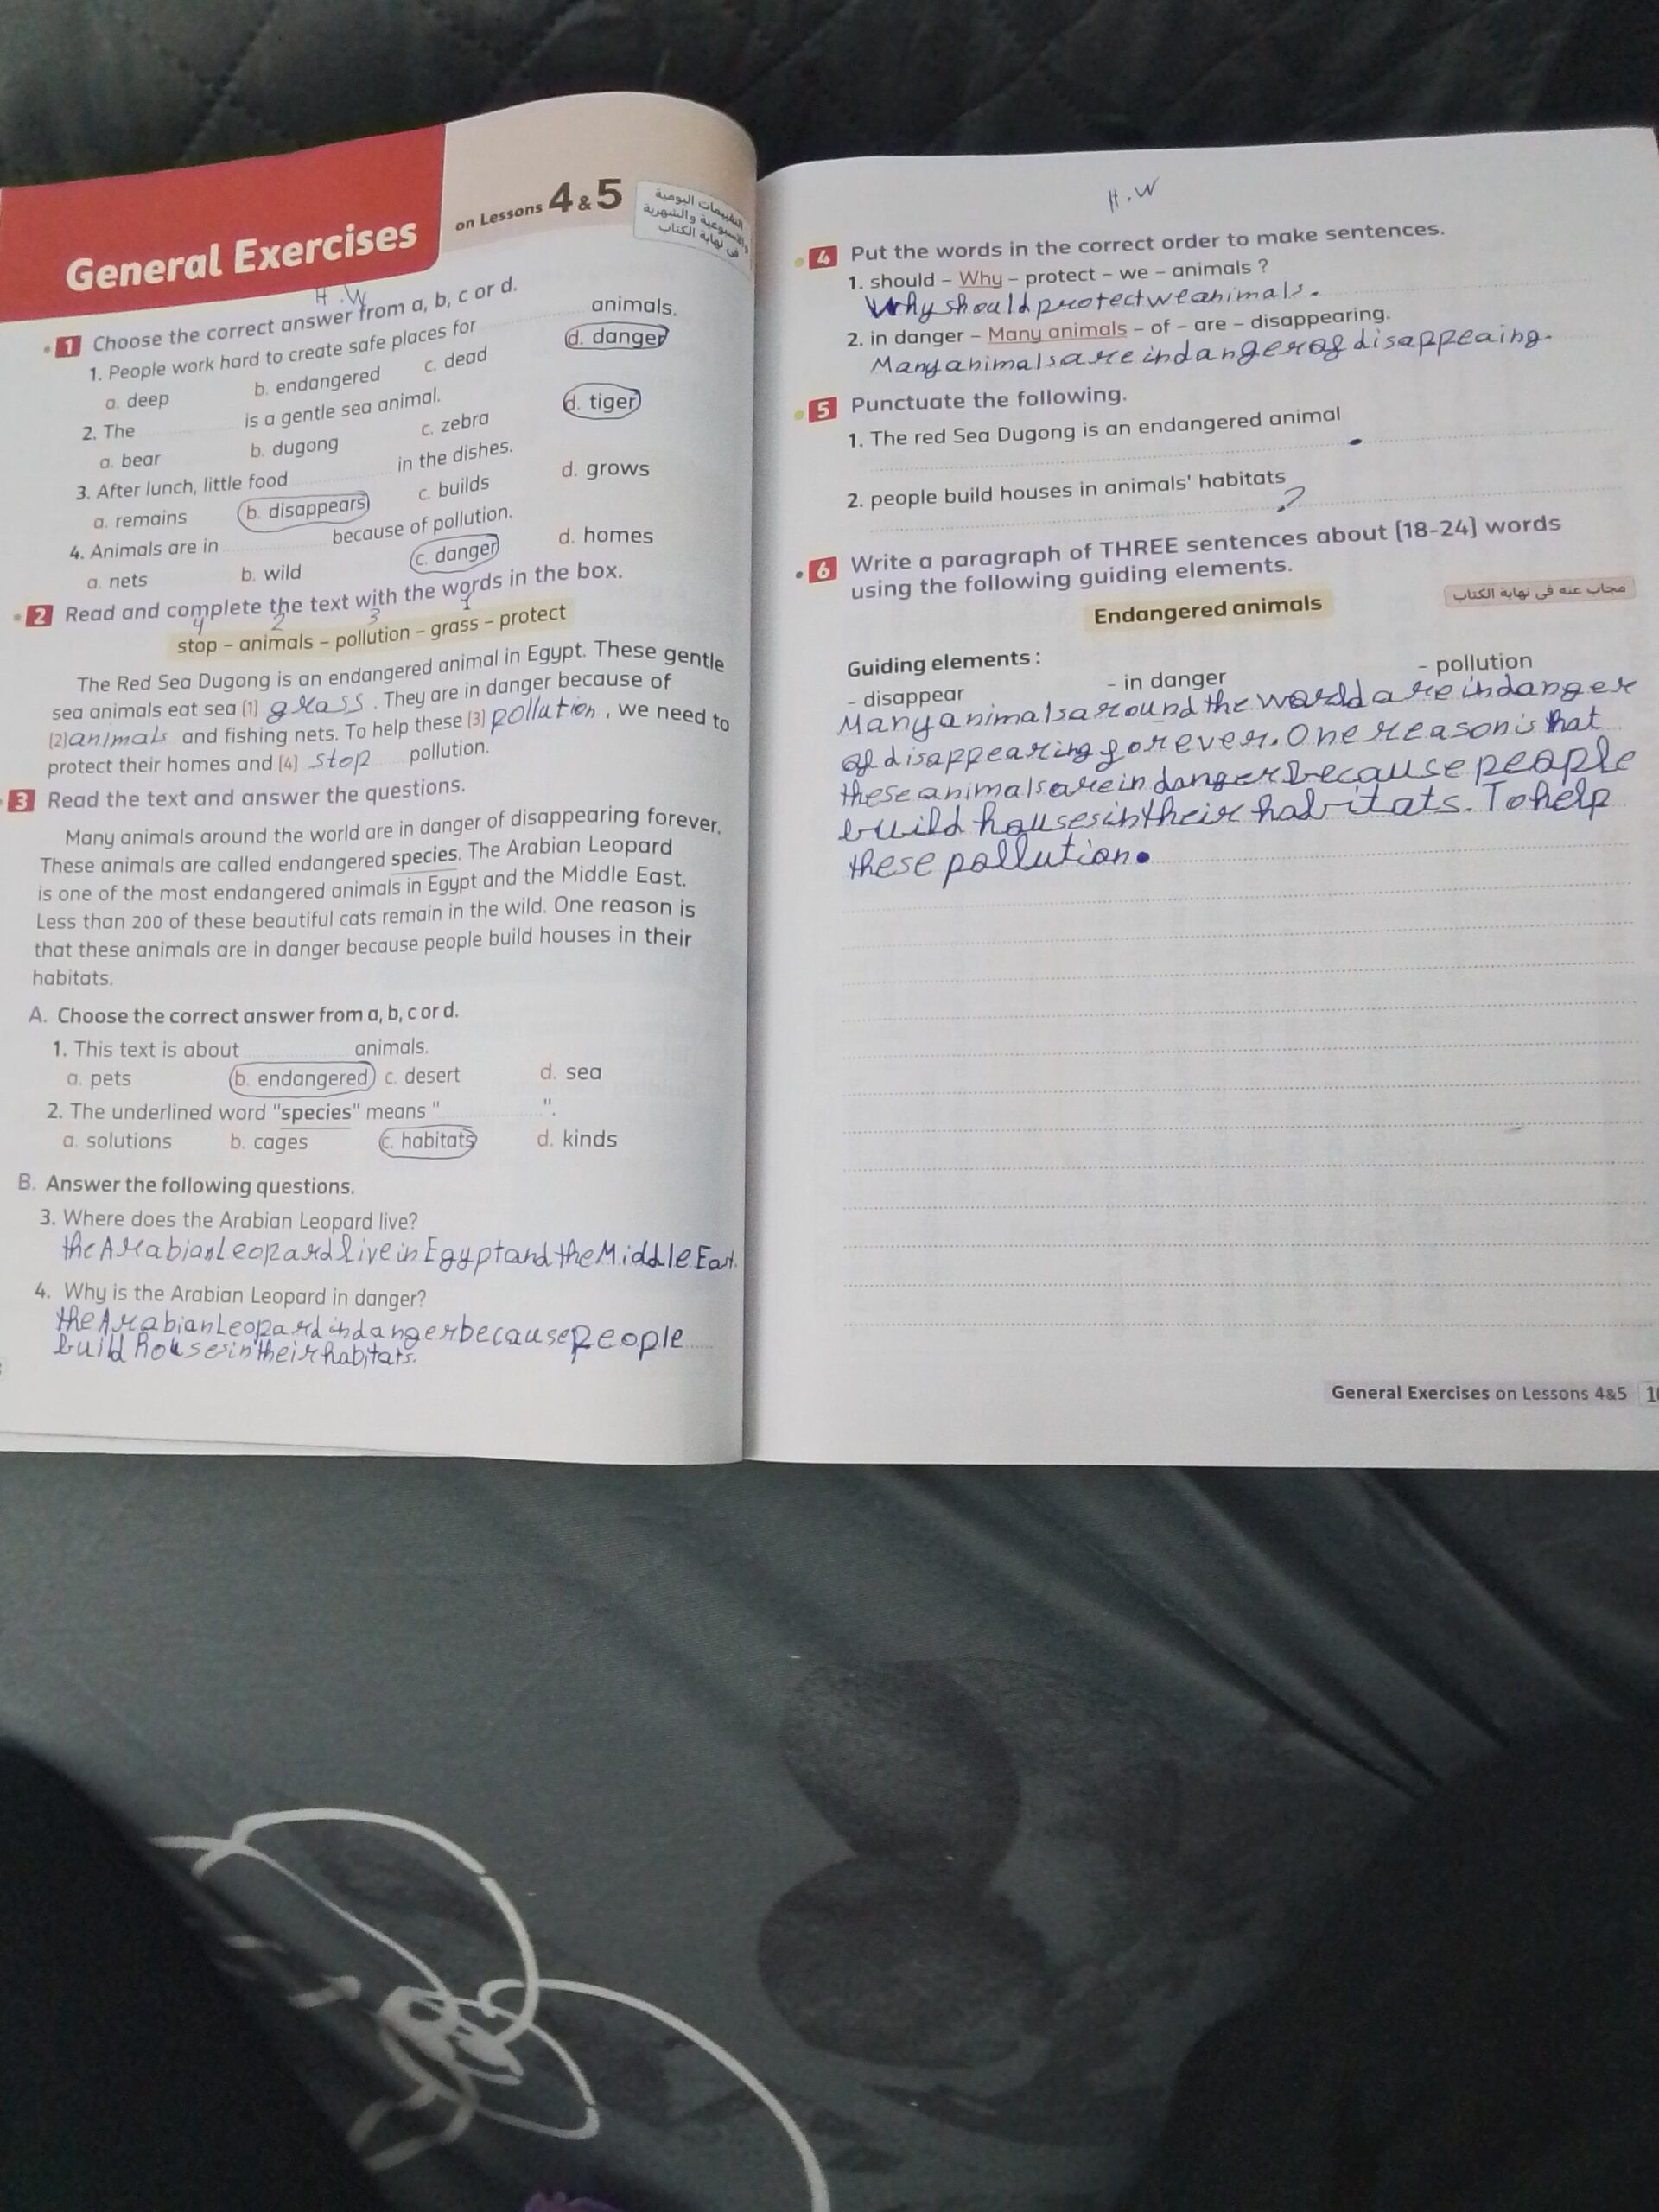 General Exercises
on Lessons 4 & 5
التقييمات اليومية
والأسبوعية والشهرية
فى نهاية الكتاب
H.W
1 Choose the correct answer from a, b, c or d.
1. People work hard to create safe places for animals.
a. deep b. endangered c. dead d. danger
2. The is a gentle sea animal.
a. bear b. dugong c. zebra d. tiger
3. After lunch, little food in the dishes.
a. remains b. disappears c. builds d. grows
4. Animals are in because of pollution.
a. nets b. wild c. danger d. homes
2 Read and complete the text with the words in the box.
4 2 3 1
stop – animals – pollution – grass – protect
The Red Sea Dugong is an endangered animal in Egypt. These gentle
sea animals eat sea (1) grass. They are in danger because of
(2) animals and fishing nets. To help these (3) pollution, we need to
protect their homes and (4) stop pollution.
3 Read the text and answer the questions.
Many animals around the world are in danger of disappearing forever.
These animals are called endangered species. The Arabian Leopard
is one of the most endangered animals in Egypt and the Middle East.
Less than 200 of these beautiful cats remain in the wild. One reason is
that these animals are in danger because people build houses in their
habitats.
A. Choose the correct answer from a, b, c or d.
1. This text is about animals.
a. pets b. endangered c. desert d. sea
2. The underlined word "species" means " ".
a. solutions b. cages c. habitats d. kinds
B. Answer the following questions.
3. Where does the Arabian Leopard live?
the Arabian Leopard live in Egypt and the Middle East.
4. Why is the Arabian Leopard in danger?
the Arabian Leopard in danger because people
build houses in their habitats.
H.W
4 Put the words in the correct order to make sentences.
1. should – Why – protect – we – animals ?
Why should protect we animals.
2. in danger – Many animals – of – are – disappearing.
Many animals are in danger of disappeaing.
5 Punctuate the following.
1. The red Sea Dugong is an endangered animal
.
2. people build houses in animals' habitats
?
6 Write a paragraph of THREE sentences about (18-24) words
using the following guiding elements.
مجاب عنه فى نهاية الكتاب
Endangered animals
Guiding elements :
- disappear - in danger - pollution
Many animals around the world are in danger
of disappearing forever. One reason is that
these animals are in danger because people
build houses in their habitats. To help
these pollution.
General Exercises on Lessons 4&5